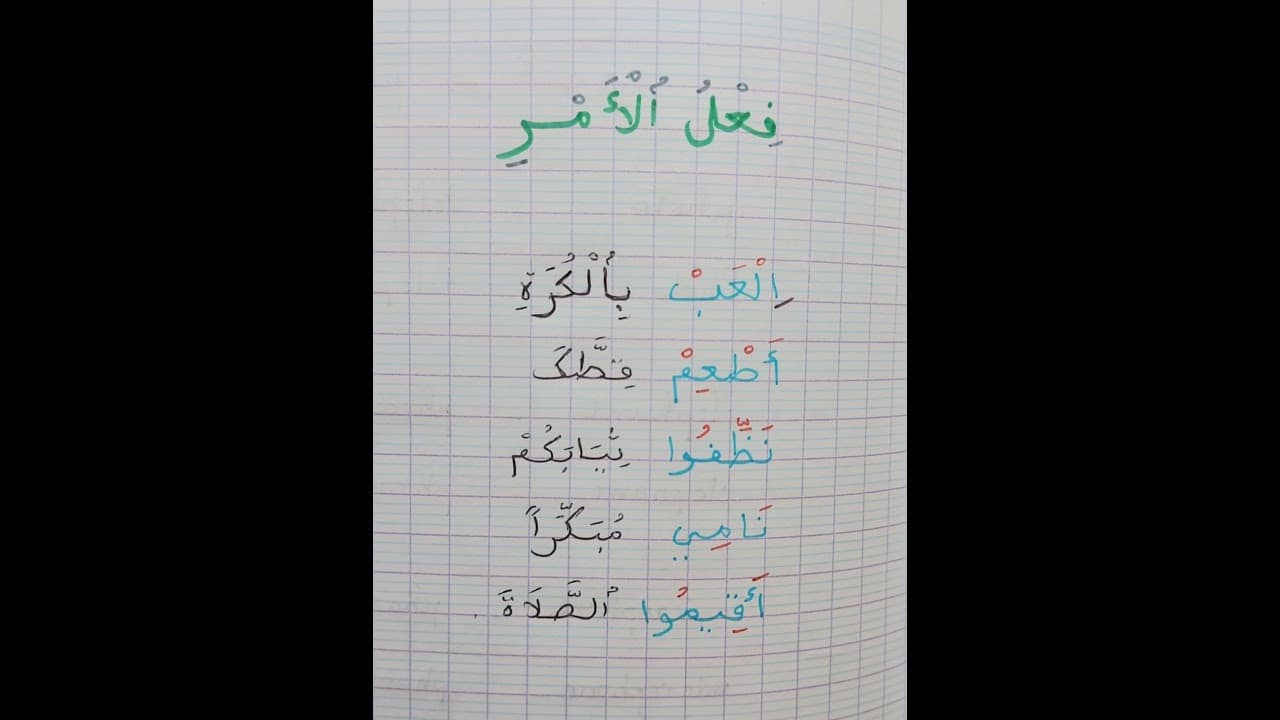 فِعْلُ ٱلْأَمْرِ
اِلْعَبْ بِٱلْكُرَةِ
أَطْعِمْ قِطَّكَ
نَظِّفُوا ثِيَابَكُمْ
نَامِي مُبَكِّرًا
أَقِيمُوا ٱلصَّلَاةَ.